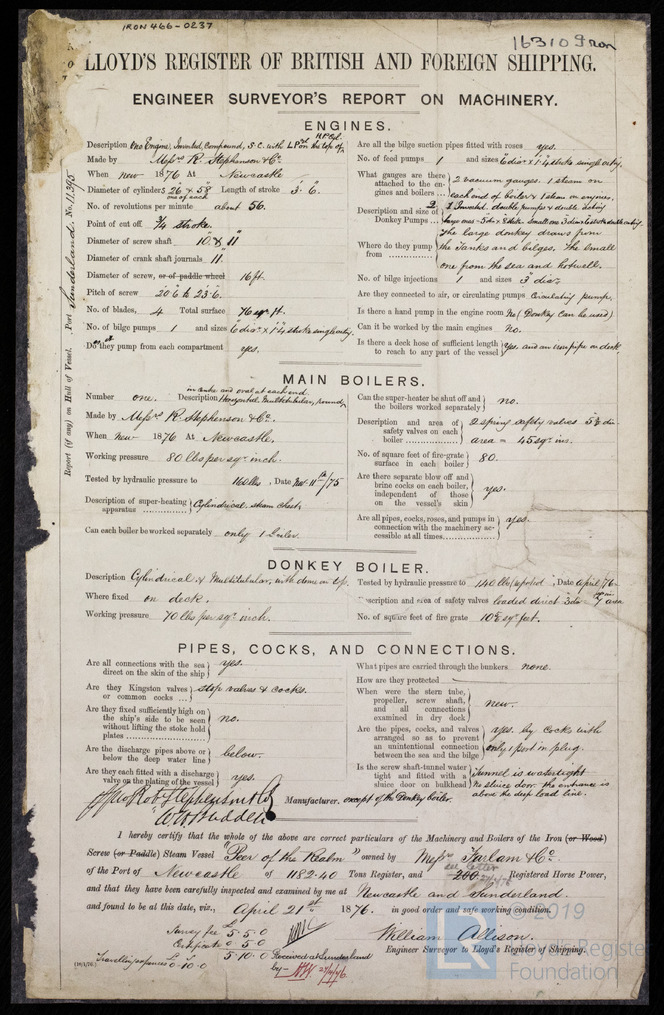 IRON 466-0237
16310 Iron
LLOYD'S REGISTER OF BRITISH AND FOREIGN SHIPPING.
ENGINEER SURVEYOR'S REPORT ON MACHINERY.
Report (if any) on Hull of Vessel, Port Sunderland. No.
ENGINES.
Description One Engine, Inverted, Compound, S.C. with L.P. on the top of H.P. Cyl.
Made by Messrs R. Stephenson & Co.
When new 1876 At Newcastle
Diameter of cylinders 26 & 58 Length of stroke 3' 6"
one of each
No. of revolutions per minute about 56.
Point of cut off 3/4 stroke.
Diameter of screw shaft 10 & 11
Diameter of crank shaft journals 11
Diameter of screw, or of paddle wheel 16 ft.
Pitch of screw 20.6 to 23.6.
No. of blades, 4 Total surface 76 sq. ft.
No. of bilge pumps 1 and sizes 6 dia. x 1'.4 stroke single acting.
Do they pump from each compartment yes.
Are all the bilge suction pipes fitted with roses yes.
No. of feed pumps 1 and sizes 6 dia. x 1'.4 stroke single acting.
What gauges are there attached to the engines and boilers 2 vacuum gauges. 1 steam on each end of boiler & 1 steam on engines.
Description and size of Donkey Pumps
Where do they pump from The large donkey draws from the Tanks and bilges. The small one from the sea and hotwell.
No. of bilge injections 1 and sizes 3" dia.
Are they connected to air, or circulating pumps Circulating pump.
Is there a hand pump in the engine room No (Donkey can be used)
Can it be worked by the main engines no.
Is there a deck hose of sufficient length to reach to any part of the vessel Yes and an iron pipe on deck.
MAIN BOILERS.
Number one. Description Horizontal, Multitubular, round in centre and oval at each end.
Made by Messrs R. Stephenson & Co.
When New 1876 At Newcastle.
Working pressure 80 lbs per sq. inch.
Tested by hydraulic pressure to 160 lbs, Date Nov. 11th/75
Description of super-heating apparatus Cylindrical steam chest.
Can each boiler be worked separately only 1 Boiler.
Can the super-heater be shut off and the boilers worked separately no.
Description and area of safety valves on each boiler 2 spring safety valves 5 3/8 dia. area = 45 sq. ins.
No. of square feet of fire-grate surface in each boiler 80.
Are there separate blow off and brine cocks on each boiler, independent of those on the vessel's skin yes.
Are all pipes, cocks, roses, and pumps in connection with the machinery accessible at all times yes.
DONKEY BOILER.
Description Cylindrical & Multitubular, with dome on top.
Where fixed on deck.
Working pressure 70 lbs per sq. inch.
Tested by hydraulic pressure to 140 lbs reported, Date April /76
Description and area of safety valves loaded direct 3 dia 7 area
No. of square feet of fire grate 10 sq. feet.
PIPES, COCKS, AND CONNECTIONS.
Are all connections with the sea direct on the skin of the ship yes.
Are they Kingston valves or common cocks stop valves & cocks.
Are they fixed sufficiently high on the ship's side to be seen without lifting the stoke hold plates no.
Are the discharge pipes above or below the deep water line below.
Are they each fitted with a discharge valve on the plating of the vessel yes.
What pipes are carried through the bunkers none.
How are they protected
When were the stern tube, propeller, screw shaft, and all connections examined in dry dock new.
Are the pipes, cocks, and valves arranged so as to prevent an unintentional connection between the sea and the bilge yes, by cocks with only 1 port in plug.
Is the screw shaft-tunnel water tight and fitted with a sluice door on bulkhead Tunnel is watertight No sluice door the entrance is above the deep load line.
Rob. Stephenson & Co.
Manufacturer. except of the Donkey boiler.
I hereby certify that the whole of the above are correct particulars of the Machinery and Boilers of the Iron (or Wood)
Screw (or Paddle) Steam Vessel "Peer of the Realm" owned by Messrs Farlam & Co.
see letter
of the Port of Newcastle of 1182.40 Tons Register, and 200 Registered Horse Power,
and that they have been carefully inspected and examined by me at Newcastle and Sunderland.
and found to be at this date, viz., April 21st 1876. in good order and safe working condition.
Survey fee £5.5.0
Certificate 0.5.0
5.10.0
Travelling expences £0.10.0
Received at Sunderland
by
William Allison.
Engineer Surveyor to Lloyd's Register of Shipping.
LR
© 2019
Lloyd's Register
Foundation